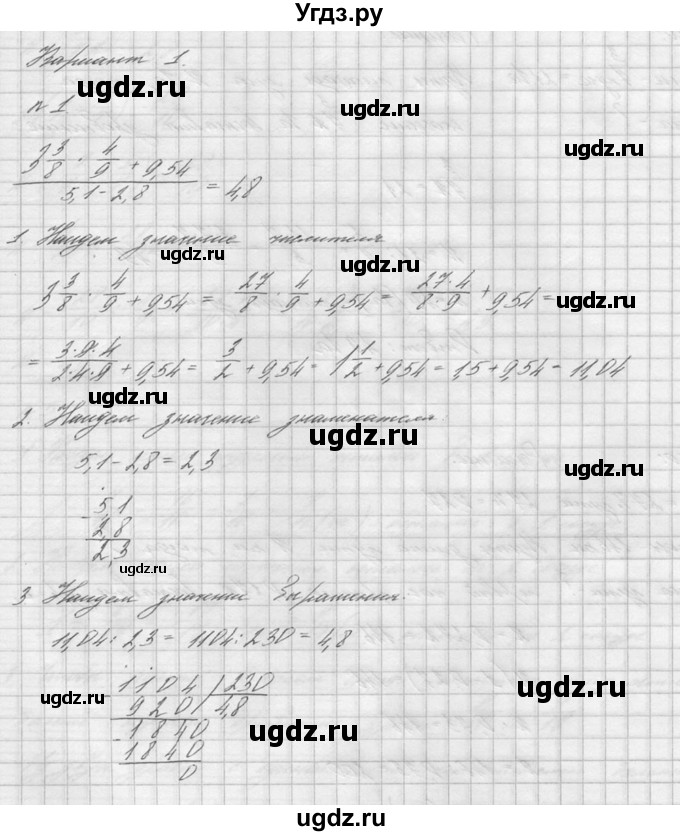 Угдз.ру
Вариант 1.
ugdz.ru ugdz.ru
№ 1
ugdz.ru
3 3/8 · 4/9 + 9,54
5,1 - 2,8 = 4,8
1. Найдем значение числителя
ugdz.ru ugdz.ru
3 3/8 · 4/9 + 9,54 = 27/8 · 4/9 + 9,54 = 27·4/8·9 + 9,54 =
ugdz.ru
= 3·9·4/2·4·9 + 9,54 = 3/2 + 9,54 = 1 1/2 + 9,54 = 1,5 + 9,54 = 11,04
ugdz.ru
2. Найдем значение знаменателя:
ugdz.ru
5,1 - 2,8 = 2,3
ugdz.ru
5,1
- 2,8
2,3
ugdz.ru
3 Найдем значение выражения:
ugdz.ru ugdz.ru
11,04 : 2,3 = 1104 : 230 = 4,8
1104 230
ugdz.ru ugdz.ru
920 4,8
- 1840 ugdz.ru
1840
0
ugdz.ru